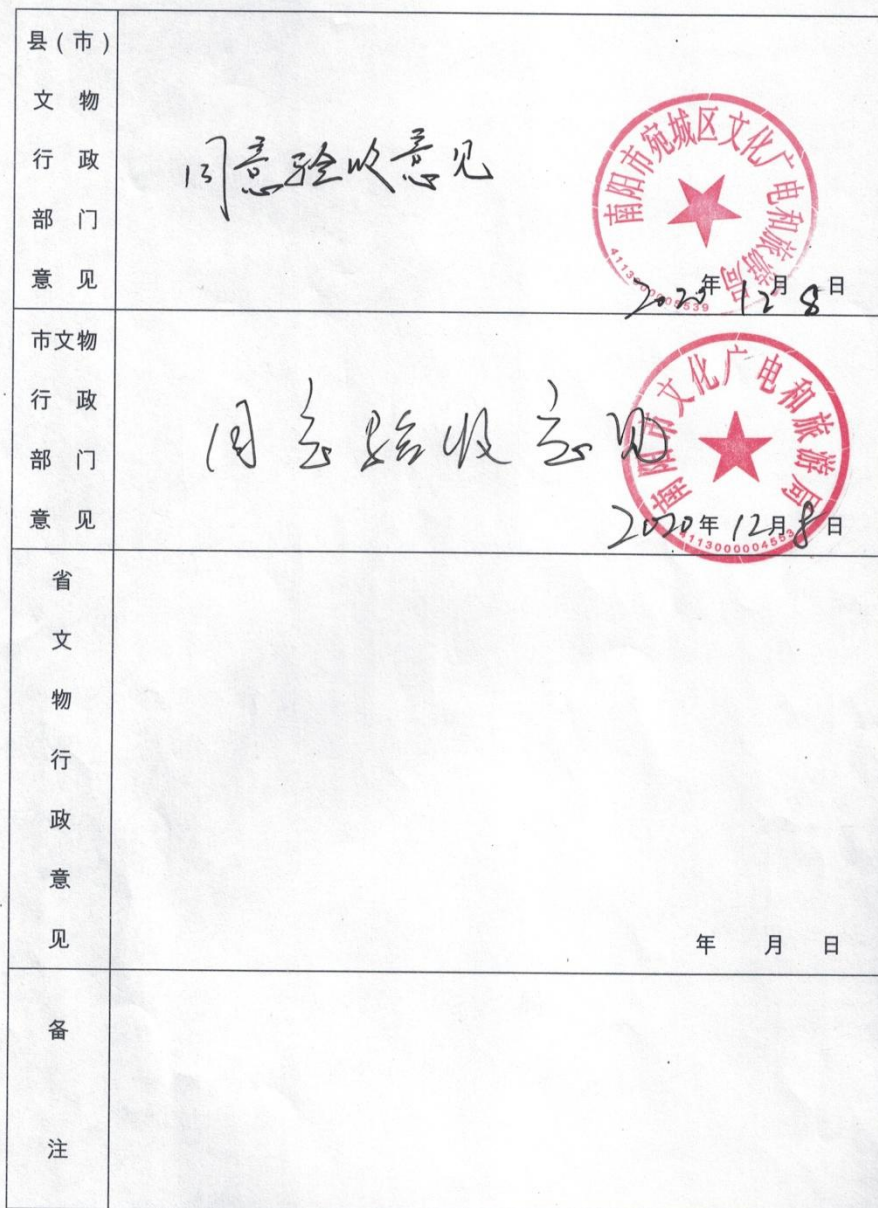 县(市)
文物
行政
部门
意见
同意验收意见
南阳市宛城区文化广电和旅游局
2020年12月8日
市文物
行政
部门
意见
同意验收意见
南阳市文化广电和旅游局
4113000004553
2020年12月8日
省
文
物
行
政
意
见
年 月 日
备
注